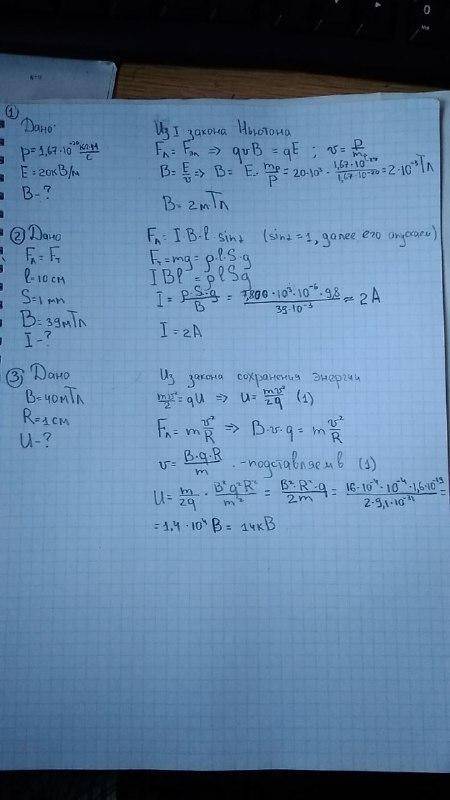 ①
Дано:
p = 1,67·10⁻²⁰ кг·м/с
E = 20кВ/м
B - ?
Из I закона Ньютона
Fл = Fэл ⇒ qvB = qE ; v = p/mp
B = E/v ⇒ B = E · mp/p = 20·10³ · = 2·10⁻³ Тл
B = 2мТл
② Дано
Fл = Fт
l = 10 см
S = 1 мм
B = 39мТл
I - ?
Fл = I B·l·sinα (sinα = 1, далее его опускаем)
Fт = mg = ρl·S·g
I Bl = ρlSg
I = ρ·S·g/B = 7,800·10³·10⁻⁶·9,8/39·10⁻³ ≈ 2А
I = 2А
③ Дано
B = 40мТл
R = 1см
U - ?
Из закона сохранения энергии
mv²/2 = qU ⇒ U = mv²/2q (1)
Fл = m v²/R ⇒ B·v·q = m v²/R
v = B·q·R/m - подставляем в (1)
U = m/2q · B²q²R²/m² = B²·R²·q/2m = 16·10⁻⁴·10⁻⁴·1,6·10⁻¹⁹/2·9,1·10⁻³¹ =
= 1,4·10⁴ В = 14кВ